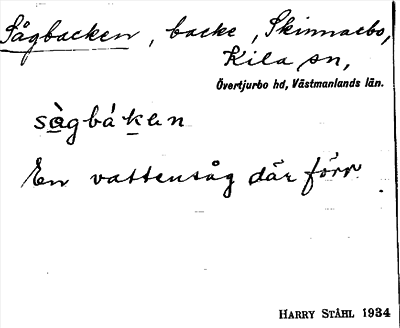 Sågbacken, backe, Skinnarbo,
Kila sn,
Övertjurbo hd, Västmanlands län.
sågbáken
En vattensåg där förr.
HARRY STÅHL 1934